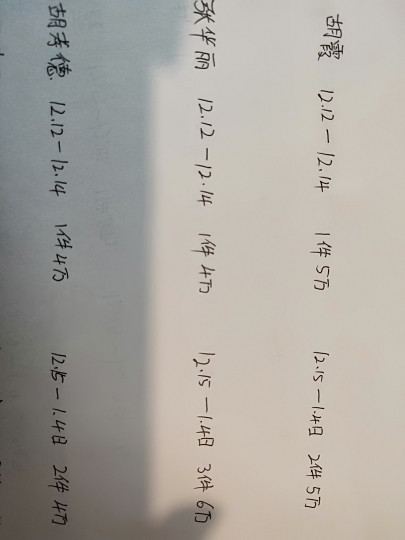 胡霞 12.12－12.14 1件5万 12.15－1.4日 2件5万
张华丽 12.12－12.14 1件4万 12.15－1.4日 3件6万
胡孝德 12.12－12.14 1件4万 12.15－1.4日 2件4万